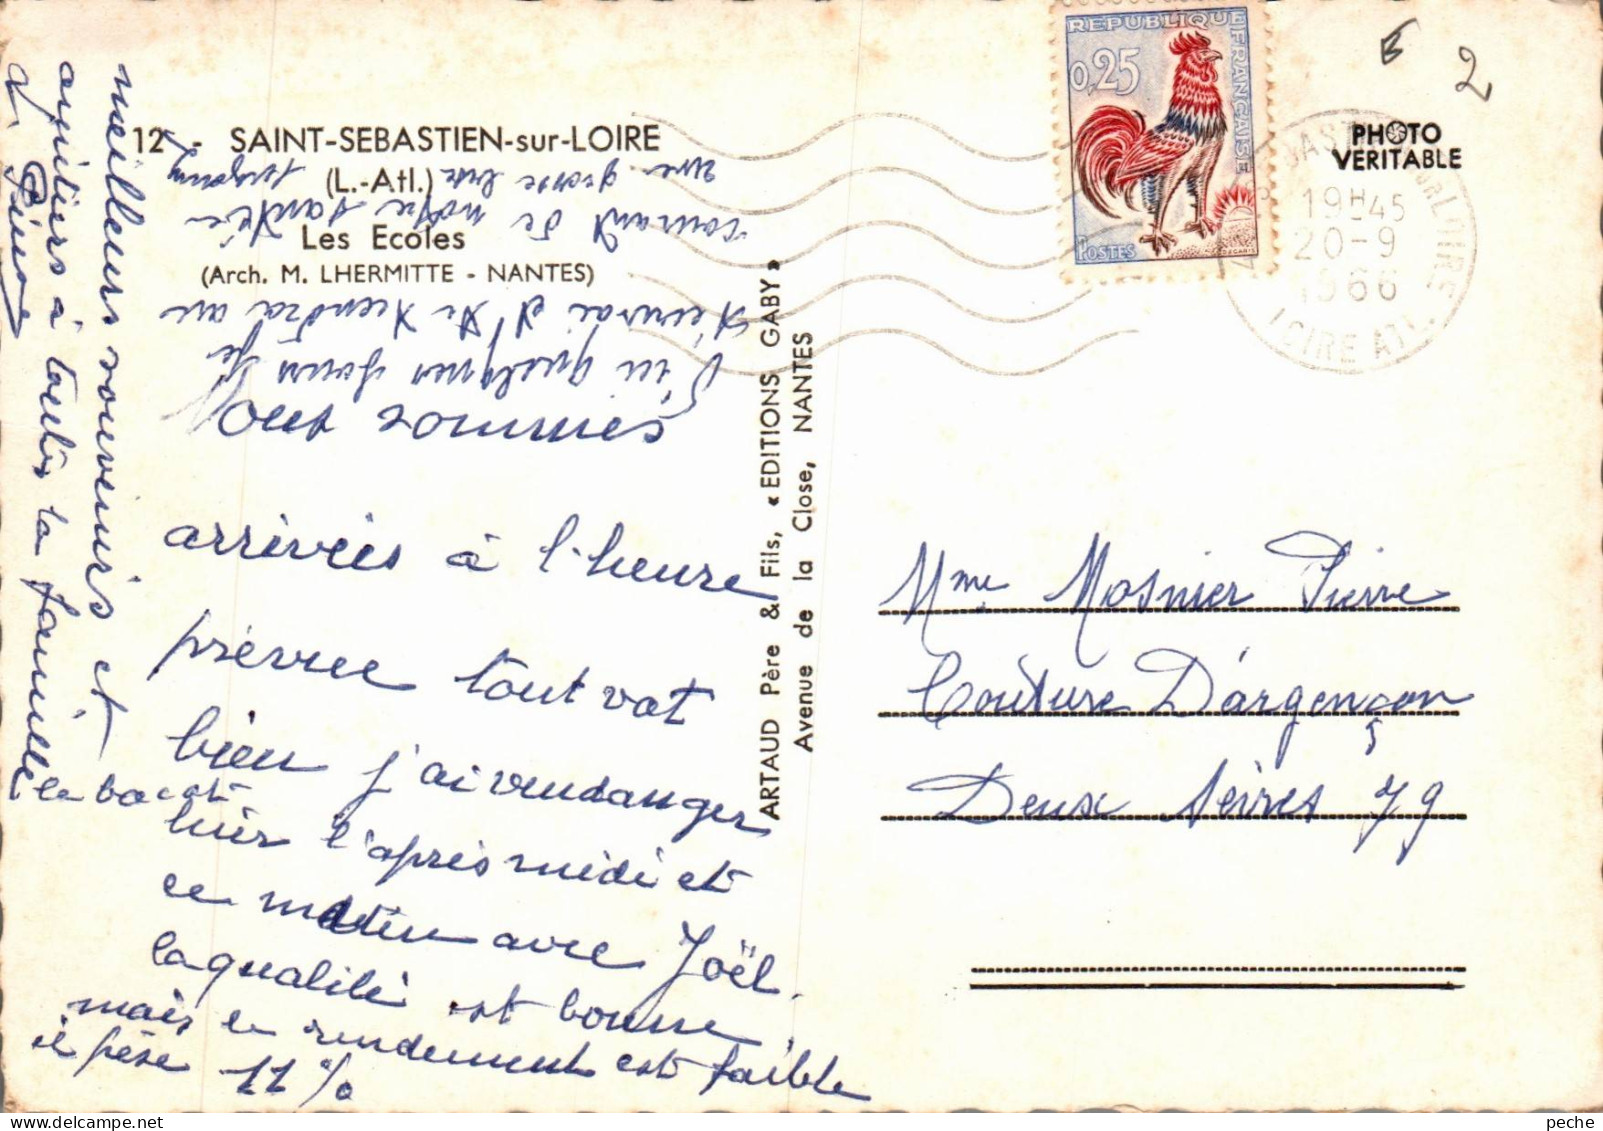 12 - SAINT-SEBASTIEN-sur-LOIRE
(L.-Atl.)
Les Ecoles
(Arch. M. LHERMITTE - NANTES)
Nous sommes
arrivées à l'heure
prévue tout vat
bien j'ai vendanger
hier l'après midi et
ce matin avec Joël.
la qualité est bonne
mais le rendement est faible
il pèse 11%
meilleurs souvenirs et
à toute la famille
D'ici quelques jours je
t'écrirai et te tiendrai au
courant de notre santée
une grosse bise
ARTAUD Père & Fils, « EDITIONS GABY »
Avenue de la Close, NANTES
REPUBLIQUE FRANÇAISE
0,25
POSTES
19H45
20-9
1966
LOIRE ATL.
2
PHOTO
VERITABLE
Mme Mosnier Pierre
Couture D'argençon
Deux Sèvres 79
peche